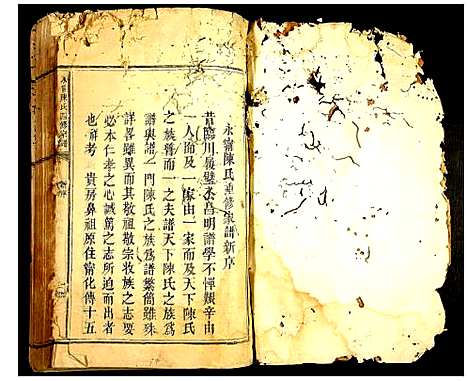 永甯陳氏重修家譜新序
昔臨川展璧永昌明譜學不憚艱辛由
一人而及一家由一家而及天下陳氏
之族尊而一之夫譜天下陳氏之族爲
譜與譜一門陳氏之族爲譜繁簡雖殊
詳畧雖異而其敬祖敬宗收族之志要
必本仁孝之心誠篤之志所迫而出者
也爾考 貴房鼻祖原住甯化傳十五
永甯陳氏四修宗譜